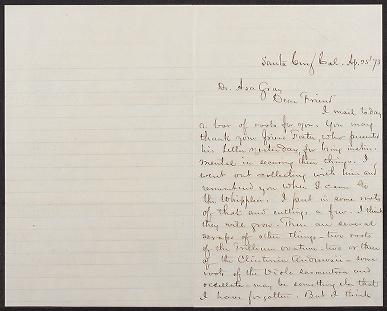 Santa Cruz Cal. Ap. 25th '73
Dr. Asa Gray
Dear Friend
I mail today
a box of roots for you. You may
thank your friend who presents
his letter yesterday, for being instru-
mental in securing these things. I
went out collecting with him and
remembered you when I came to
the Whipplea. I put in some roots
of that and cuttings a few. I think
they will grow. There are several
scraps of other things - two roots
of the Trillium ovatum - two or three
of the Clintonia Andrewsii - some
roots of the Viola sarmentosa and
ocellata - may be something else that
I have forgotten. But I think